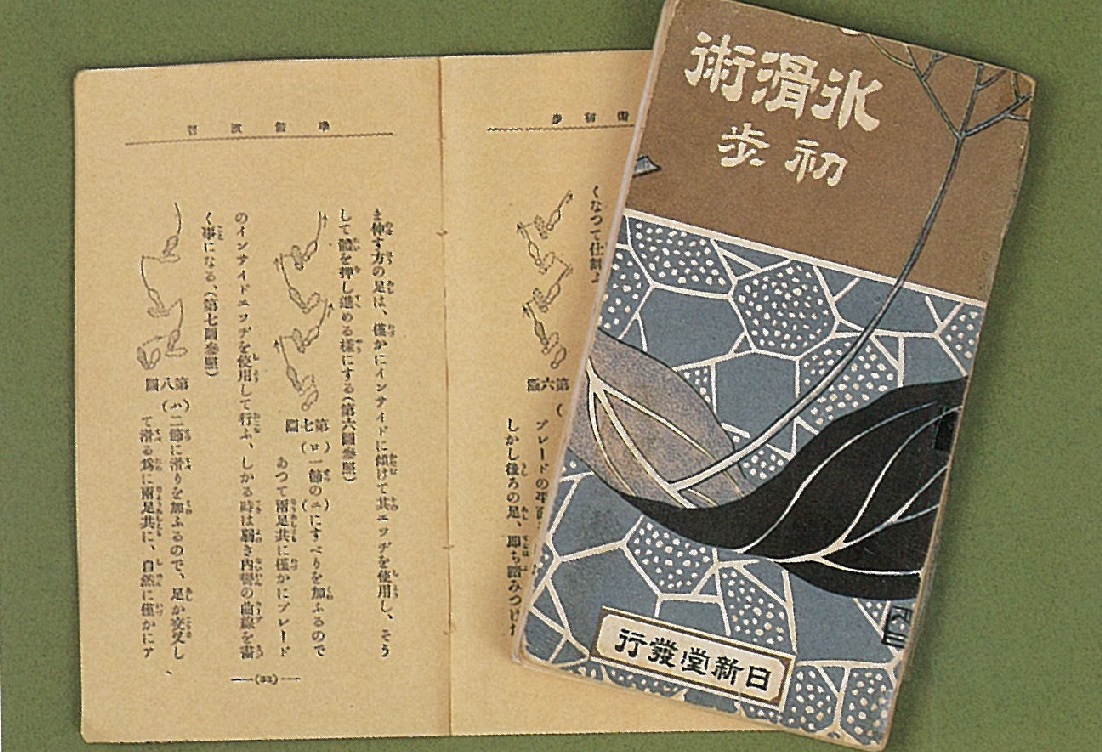 氷滑術
初歩
日新堂發行
くなつて仕舞ふ
第六圖
しかし後ろの足、即ち踏みつけた
ま伸す方の足は、僅かにインサイドに傾けて其エッヂを使用し、そう
して體を押し進める樣にする(第六圖參照)
第七圖
(ロ)一節の(イ)にすべりを加ふるので
あつて兩足共に僅かにブレード
のインサイドエッヂを使用して行ふ、しかる時は弱き内彎の曲線を書
く事になる、(第七圖參照)
第八圖
(ハ)二節に滑りを加ふるので、足が交叉し
て滑る爲に兩足共に、自然に僅かにア